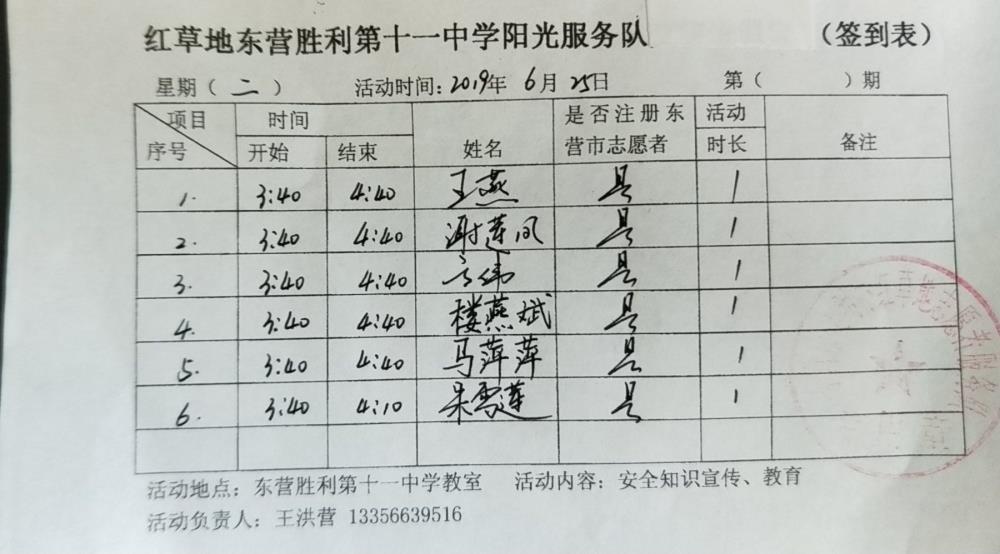 红草地东营胜利第十一中学阳光服务队 （签到表）
星期（ 二 ） 活动时间：2019年 6月 25日 第（ ）期
项目 时间 是否注册东 活动
序号 开始 结束 姓名 营市志愿者 时长 备注
1. 3:40 4:40 王燕 是 1
2. 3:40 4:40 谢莲凤 是 1
3. 3:40 4:40 是 1
4. 3:40 4:40 楼燕斌 是 1
5. 3:40 4:40 马萍萍 是 1
6. 3:40 4:10 朱雪莲 是 1
活动地点：东营胜利第十一中学教室 活动内容：安全知识宣传、教育
活动负责人：王洪营 13356639516